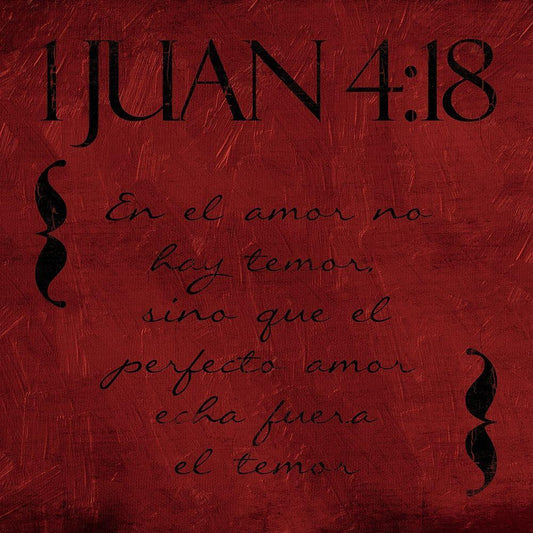 1 JUAN 4:18
En el amor no
hay temor,
sino que el
perfecto amor
echa fuera
el temor